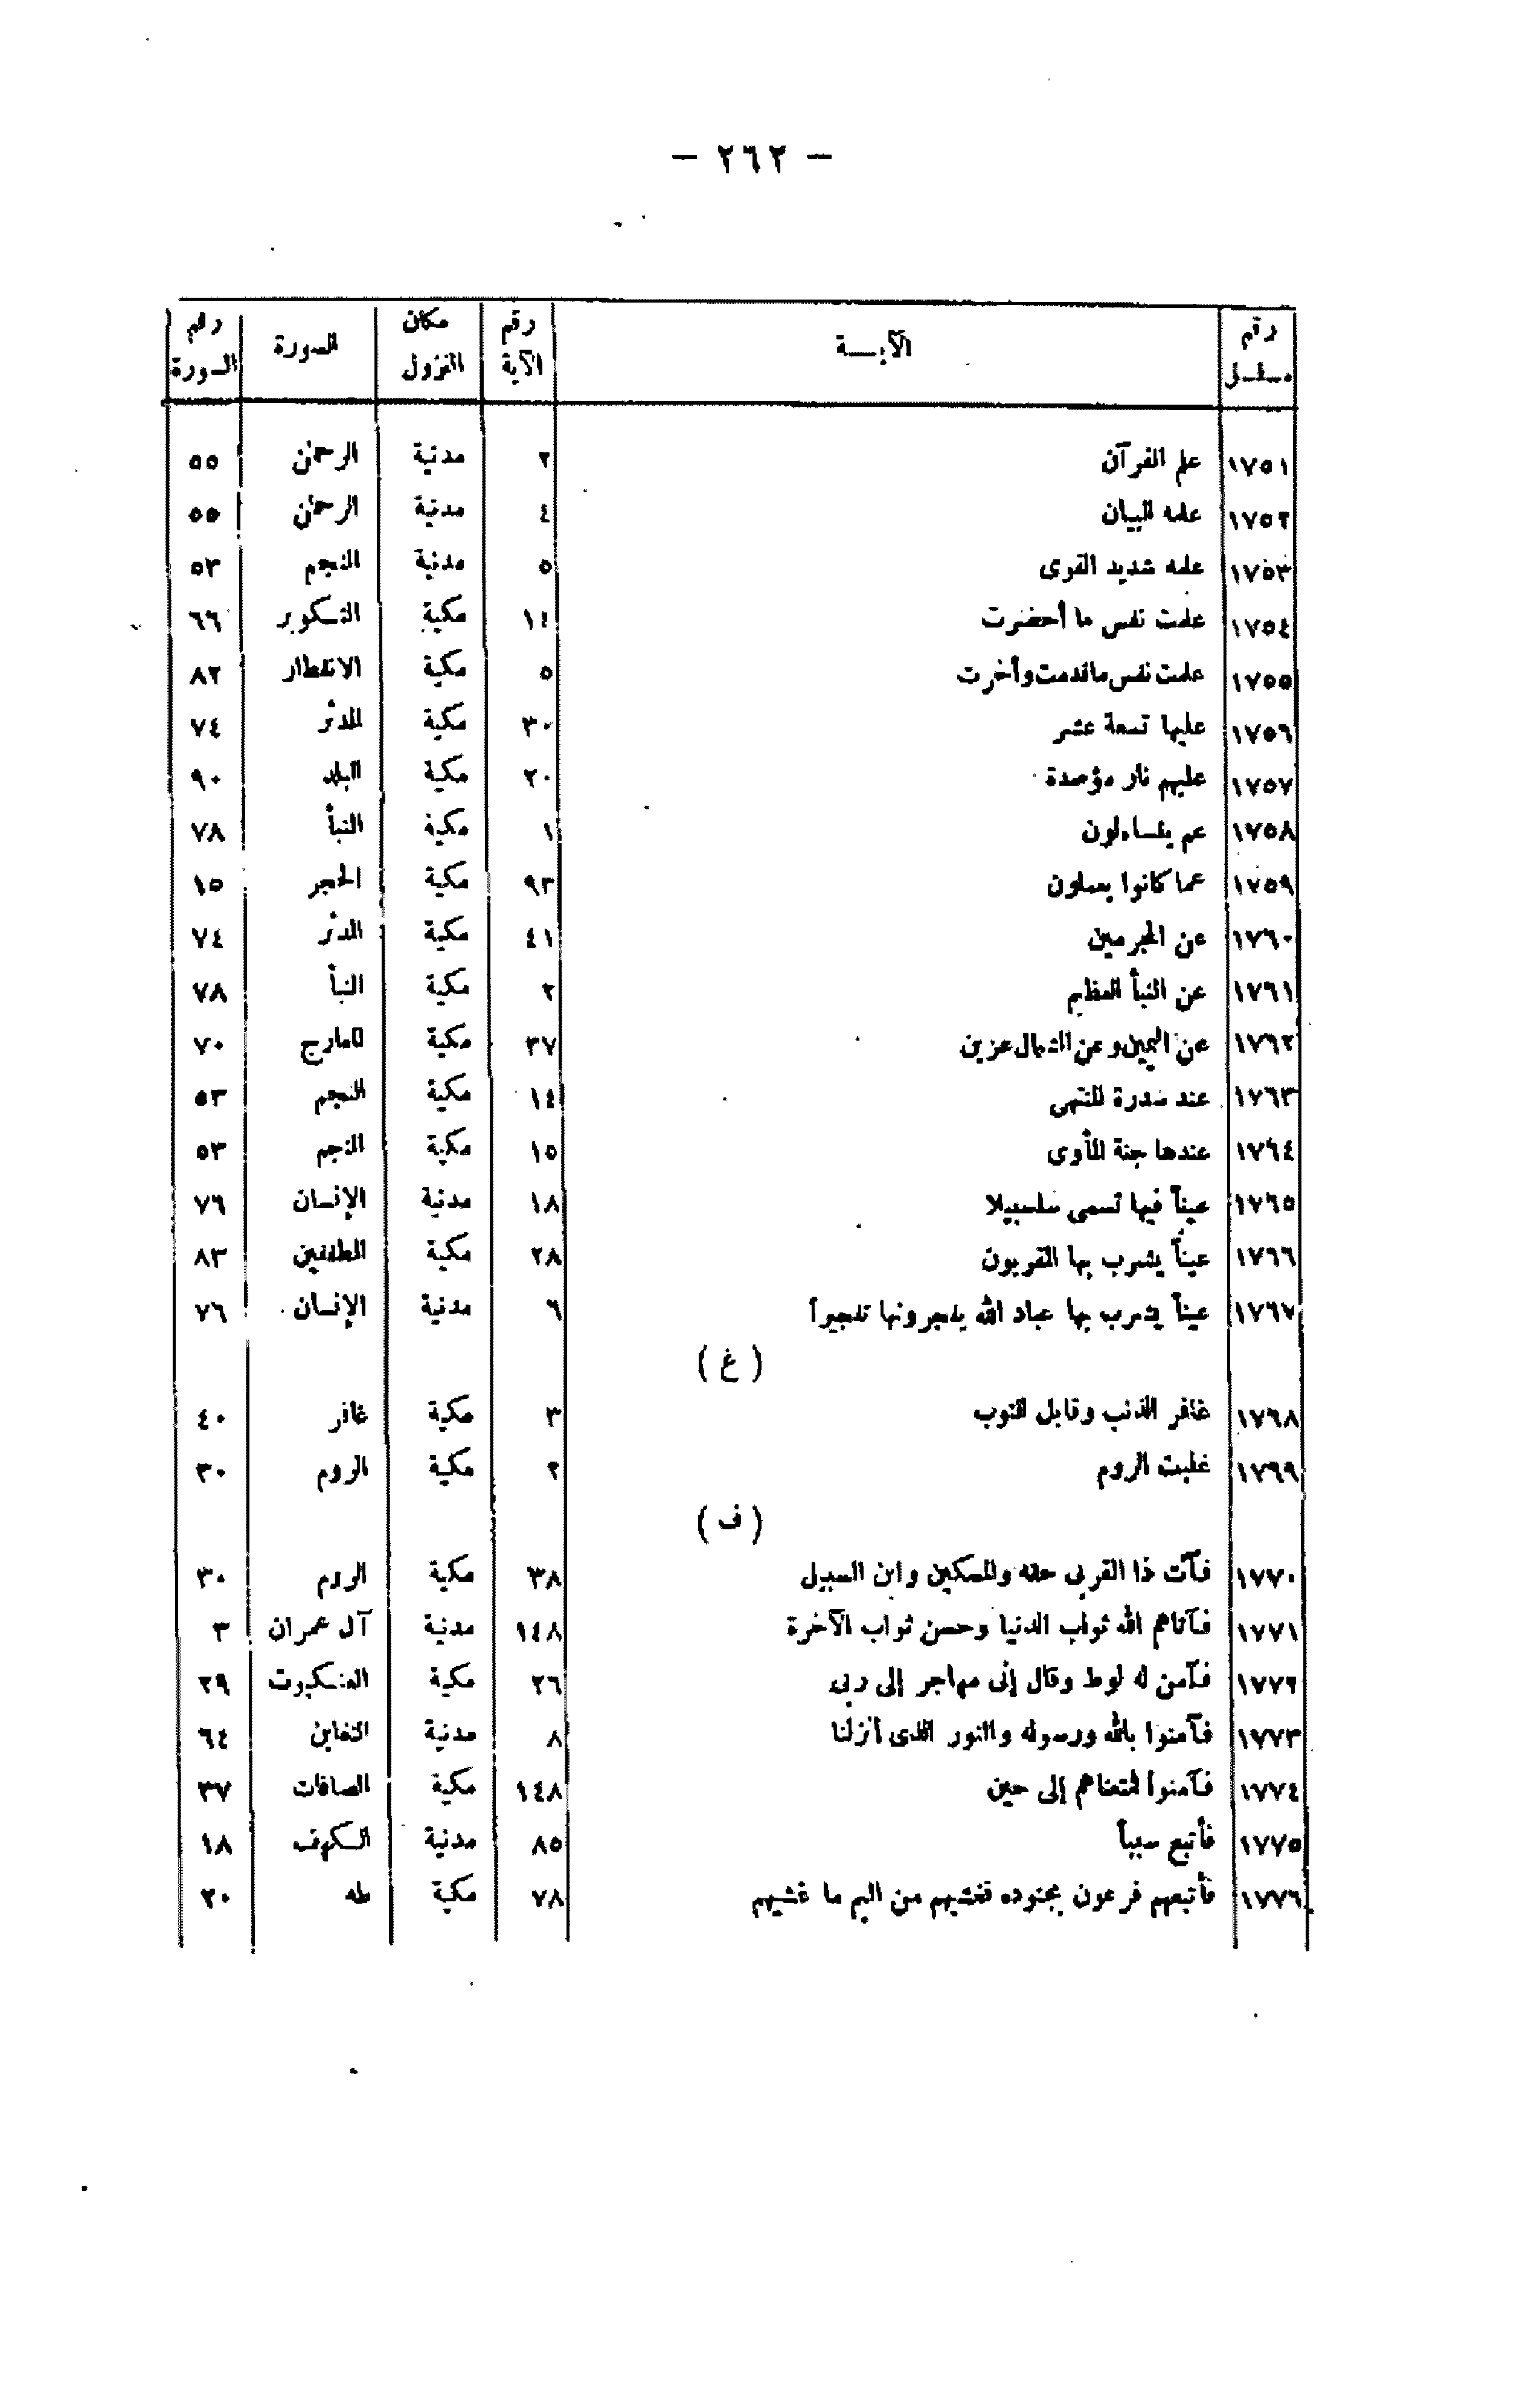 — ٢٦٢ —
رقم مسلسل | الآيــة | رقم الآية | مكان النزول | السورة | رقم السورة
١٧٥١ | علم القرآن | ٢ | مدنية | الرحمن | ٥٥
١٧٥٢ | علمه البيان | ٤ | مدنية | الرحمن | ٥٥
١٧٥٣ | علمه شديد القوى | ٥ | مدنية | النجم | ٥٣
١٧٥٤ | علمت نفس ما أحضرت | ١٤ | مكية | التكوير | ٦٦
١٧٥٥ | علمت نفس ما قدمت وأخرت | ٥ | مكية | الانفطار | ٨٢
١٧٥٦ | عليها تسعة عشر | ٣٠ | مكية | المدثر | ٧٤
١٧٥٧ | عليهم نار مؤصدة | ٢٠ | مكية | البلد | ٩٠
١٧٥٨ | عم يتساءلون | ١ | مكية | النبأ | ٧٨
١٧٥٩ | عما كانوا يعملون | ٩٣ | مكية | الحجر | ١٥
١٧٦٠ | عن المجرمين | ٤١ | مكية | المدثر | ٧٤
١٧٦١ | عن النبأ العظيم | ٢ | مكية | النبأ | ٧٨
١٧٦٢ | عن اليمين وعن الشمال عزين | ٣٧ | مكية | المعارج | ٧٠
١٧٦٣ | عند سدرة المنتهى | ١٤ | مكية | النجم | ٥٣
١٧٦٤ | عندها جنة المأوى | ١٥ | مكية | النجم | ٥٣
١٧٦٥ | عيناً فيها تسمى سلسبيلا | ١٨ | مدنية | الإنسان | ٧٦
١٧٦٦ | عيناً يشرب بها المقربون | ٢٨ | مكية | المطففين | ٨٣
١٧٦٧ | عيناً يشرب بها عباد الله يفجرونها تفجيراً | ٦ | مدنية | الإنسان | ٧٦
( غ )
١٧٦٨ | غافر الذنب وقابل التوب | ٣ | مكية | غافر | ٤٠
١٧٦٩ | غلبت الروم | ٢ | مكية | الروم | ٣٠
( ف )
١٧٧٠ | فآت ذا القربى حقه والمسكين وابن السبيل | ٣٨ | مكية | الروم | ٣٠
١٧٧١ | فآتاهم الله ثواب الدنيا وحسن ثواب الآخرة | ١٤٨ | مدنية | آل عمران | ٣
١٧٧٢ | فآمن له لوط وقال إنى مهاجر إلى ربى | ٢٦ | مكية | العنكبوت | ٢٩
١٧٧٣ | فآمنوا بالله ورسوله والنور الذى أنزلنا | ٨ | مدنية | التغابن | ٦٤
١٧٧٤ | فآمنوا فمتعناهم إلى حين | ١٤٨ | مكية | الصافات | ٣٧
١٧٧٥ | فأتبع سبباً | ٨٥ | مدنية | الكهف | ١٨
١٧٧٦ | فأتبعهم فرعون بجنوده فغشيهم من اليم ما غشيهم | ٧٨ | مكية | طه | ٢٠